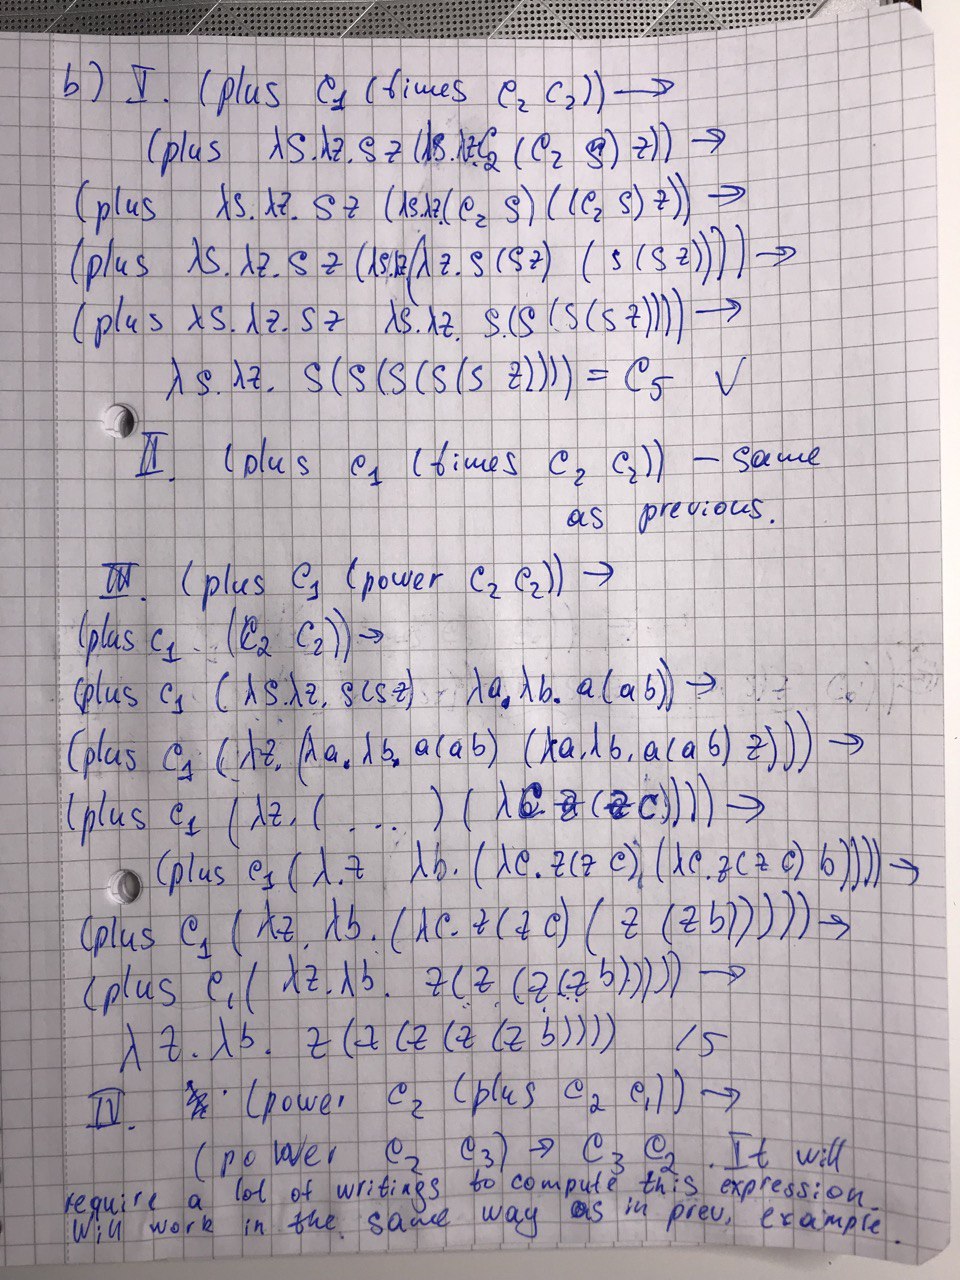 b) I. (plus c₁ (times c₂ c₂)) →
(plus λs.λz.sz (λs.λz C₂ (C₂ s) z)) →
(plus λs.λz.sz (λs.λz(c₂ s) ((c₂ s) z)) →
(plus λs.λz.sz (λs.λz(λz.s(sz) (s(sz)))) →
(plus λs.λz.sz λs.λz. s(s(s(sz)))) →
λs.λz. s(s(s(s(s z)))) = C₅ √
II. (plus c₁ (times c₂ c₂)) – same
as previous.
III. (plus c₁ (power c₂ c₂)) →
(plus c₁ (c₂ c₂)) →
(plus c₁ (λs.λz.s(sz) λa.λb.a(ab)) →
(plus c₁ (λz.(λa.λb.a(ab) (λa.λb.a(ab) z))) →
(plus c₁ (λz.( ... ) (λc.z(zc)))) →
(plus c₁ (λ.z λb.(λc.z(z c) (λc.z(z c) b)))) →
(plus c₁ (λz.λb.(λc.z(z c) ( z (z b)))))) →
(plus c₁ ( λz.λb. z(z (z(z b))))) →
λz.λb. z(z(z(z(z b)))) /5
IV. (power c₂ (plus c₂ c₁)) →
(power c₂ c₃) → C₃ C₂. It will
require a lot of writings to compute this expression.
Will work in the same way as in prev. example.